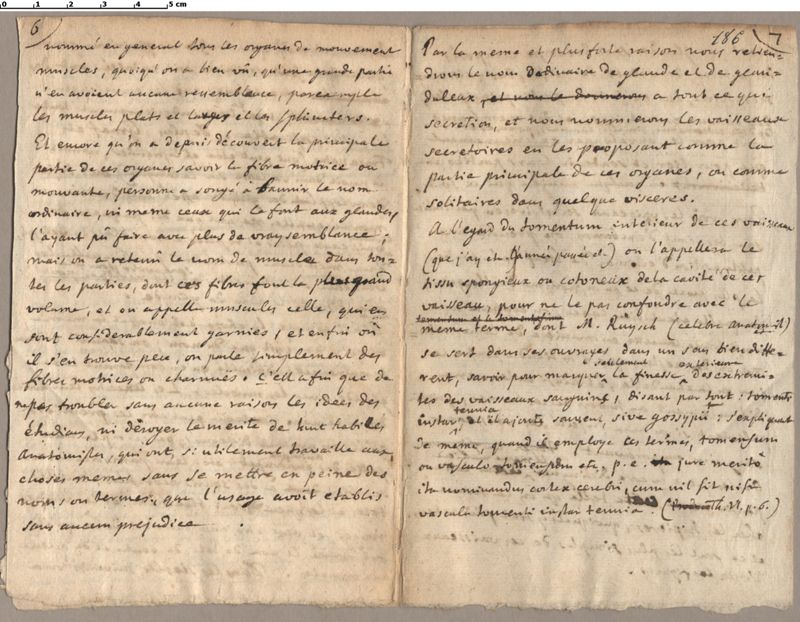 6
nommé en general tous les organes de mouvement
muscles, quoiqu'on a bien vû, qu'une grande partie
n'en avoient aucune ressemblance, par exemple
les muscles plats et larges et les sphincters.
Et encore qu'on a depuis découvert la principale
partie de ces organes savoir la fibre motrice ou
mouvante, personne a songé à bannir le nom
ordinaire, ni meme ceux qui le font aux glandes,
l'ayant pû faire avec plus de vraysemblance;
mais on a retenû le nom de muscle dans tou-
tes les parties, dont ces fibres font le plus grand
volume, et on appelle muscules celle, qui en
sont considerablement garnies, et enfin où
il s'en trouve peu, on parle simplement des
fibres motrices ou charnuës. C'est afin que de
ne pas troubler sans aucune raison les idées des
étudians, ni déroger le merite de tout habiles
Anatomistes, qui ont, si utilement travaille aux
choses memes sans se mettre en peine des
noms ou termes, que l'usage avoit etablis
sans aucun prejudice.
186 7
Par la meme et plus forte raison nous retien-
drons le nom ordinaire de glande et de glan-
duleux, et nous le donnerons a tout ce qui
secretion, et nous nommerons les vaisseaux
secretoires en les proposant comme la
partie principale de ces organes, ou comme
solitaires dans quelque visceres.
A l'egard du tomentum interieur de ces vaisseaux
(que j'ay et. l'année passée d.) on l'appellera le
tissu spongieux ou cotoneux de la cavité de ces
vaisseau, pour ne le pas confondre avec le
meme terme, dont M. Ruysch (celebre anatomist)
se sert dans ses ouvrages dans un sens bien diffe-
rent, savoir pour marquer seulement la finesse exterieure des extremi-
tés des vaisseaux sanguins, disant par tout: tomenti
instar tenuia et il ajoute souvent, sive gossypii: s'expliquant
de meme, quand il employe ces termes, tomentum
ou vasculo tomentosum etc, p. e. jure meritò
ita nominandus cortex cerebri, cum nil sit nisi
vascula tomenti instar tenuia. p. 6.)